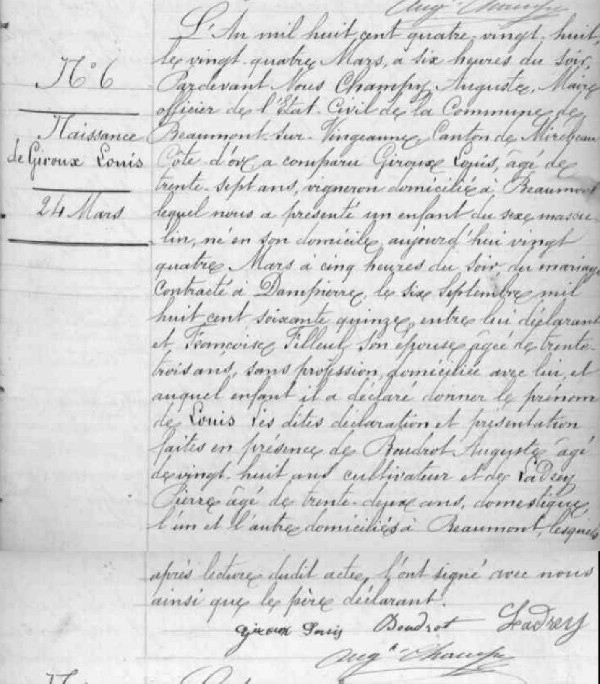 Aug.te Champy
N.o 6
Naissance
de Giroux Louis
24 Mars
L'An mil huit cent quatre-vingt-huit,
le vingt-quatre Mars, à six heures du soir,
Pardevant Nous Champy Auguste, Maire
officier de l'Etat-Civil de la Commune de
Beaumont-sur-Vingeanne Canton de Mirebeau
Côte-d'or, a comparu Giroux Louis, âgé de
trente-sept ans, vigneron domicilié à Beaumont
lequel nous a présenté un enfant du sexe mascu-
lin, né en son domicile, aujourd'hui vingt
quatre Mars à cinq heures du soir, du mariage
contracté à Dampierre, le six septembre mil
huit cent soixante-quinze, entre lui déclarant
et Françoise Filleul son épouse, âgée de trente-
trois ans, sans profession, domiciliée avec lui, et
auquel enfant il a déclaré donner le prénom
de Louis Les dites déclaration et présentation
faites en présence de Boudrot Auguste âgé
de vingt-huit ans cultivateur et de LaDrey
Pierre âgé de trente-deux ans, domestique,
l'un et l'autre domiciliés à Beaumont, lesquels
après lecture dudit acte, l'ont signé avec nous
ainsi que le père déclarant.
Giroux Louis Boudrot LaDrey
Aug.te Champy